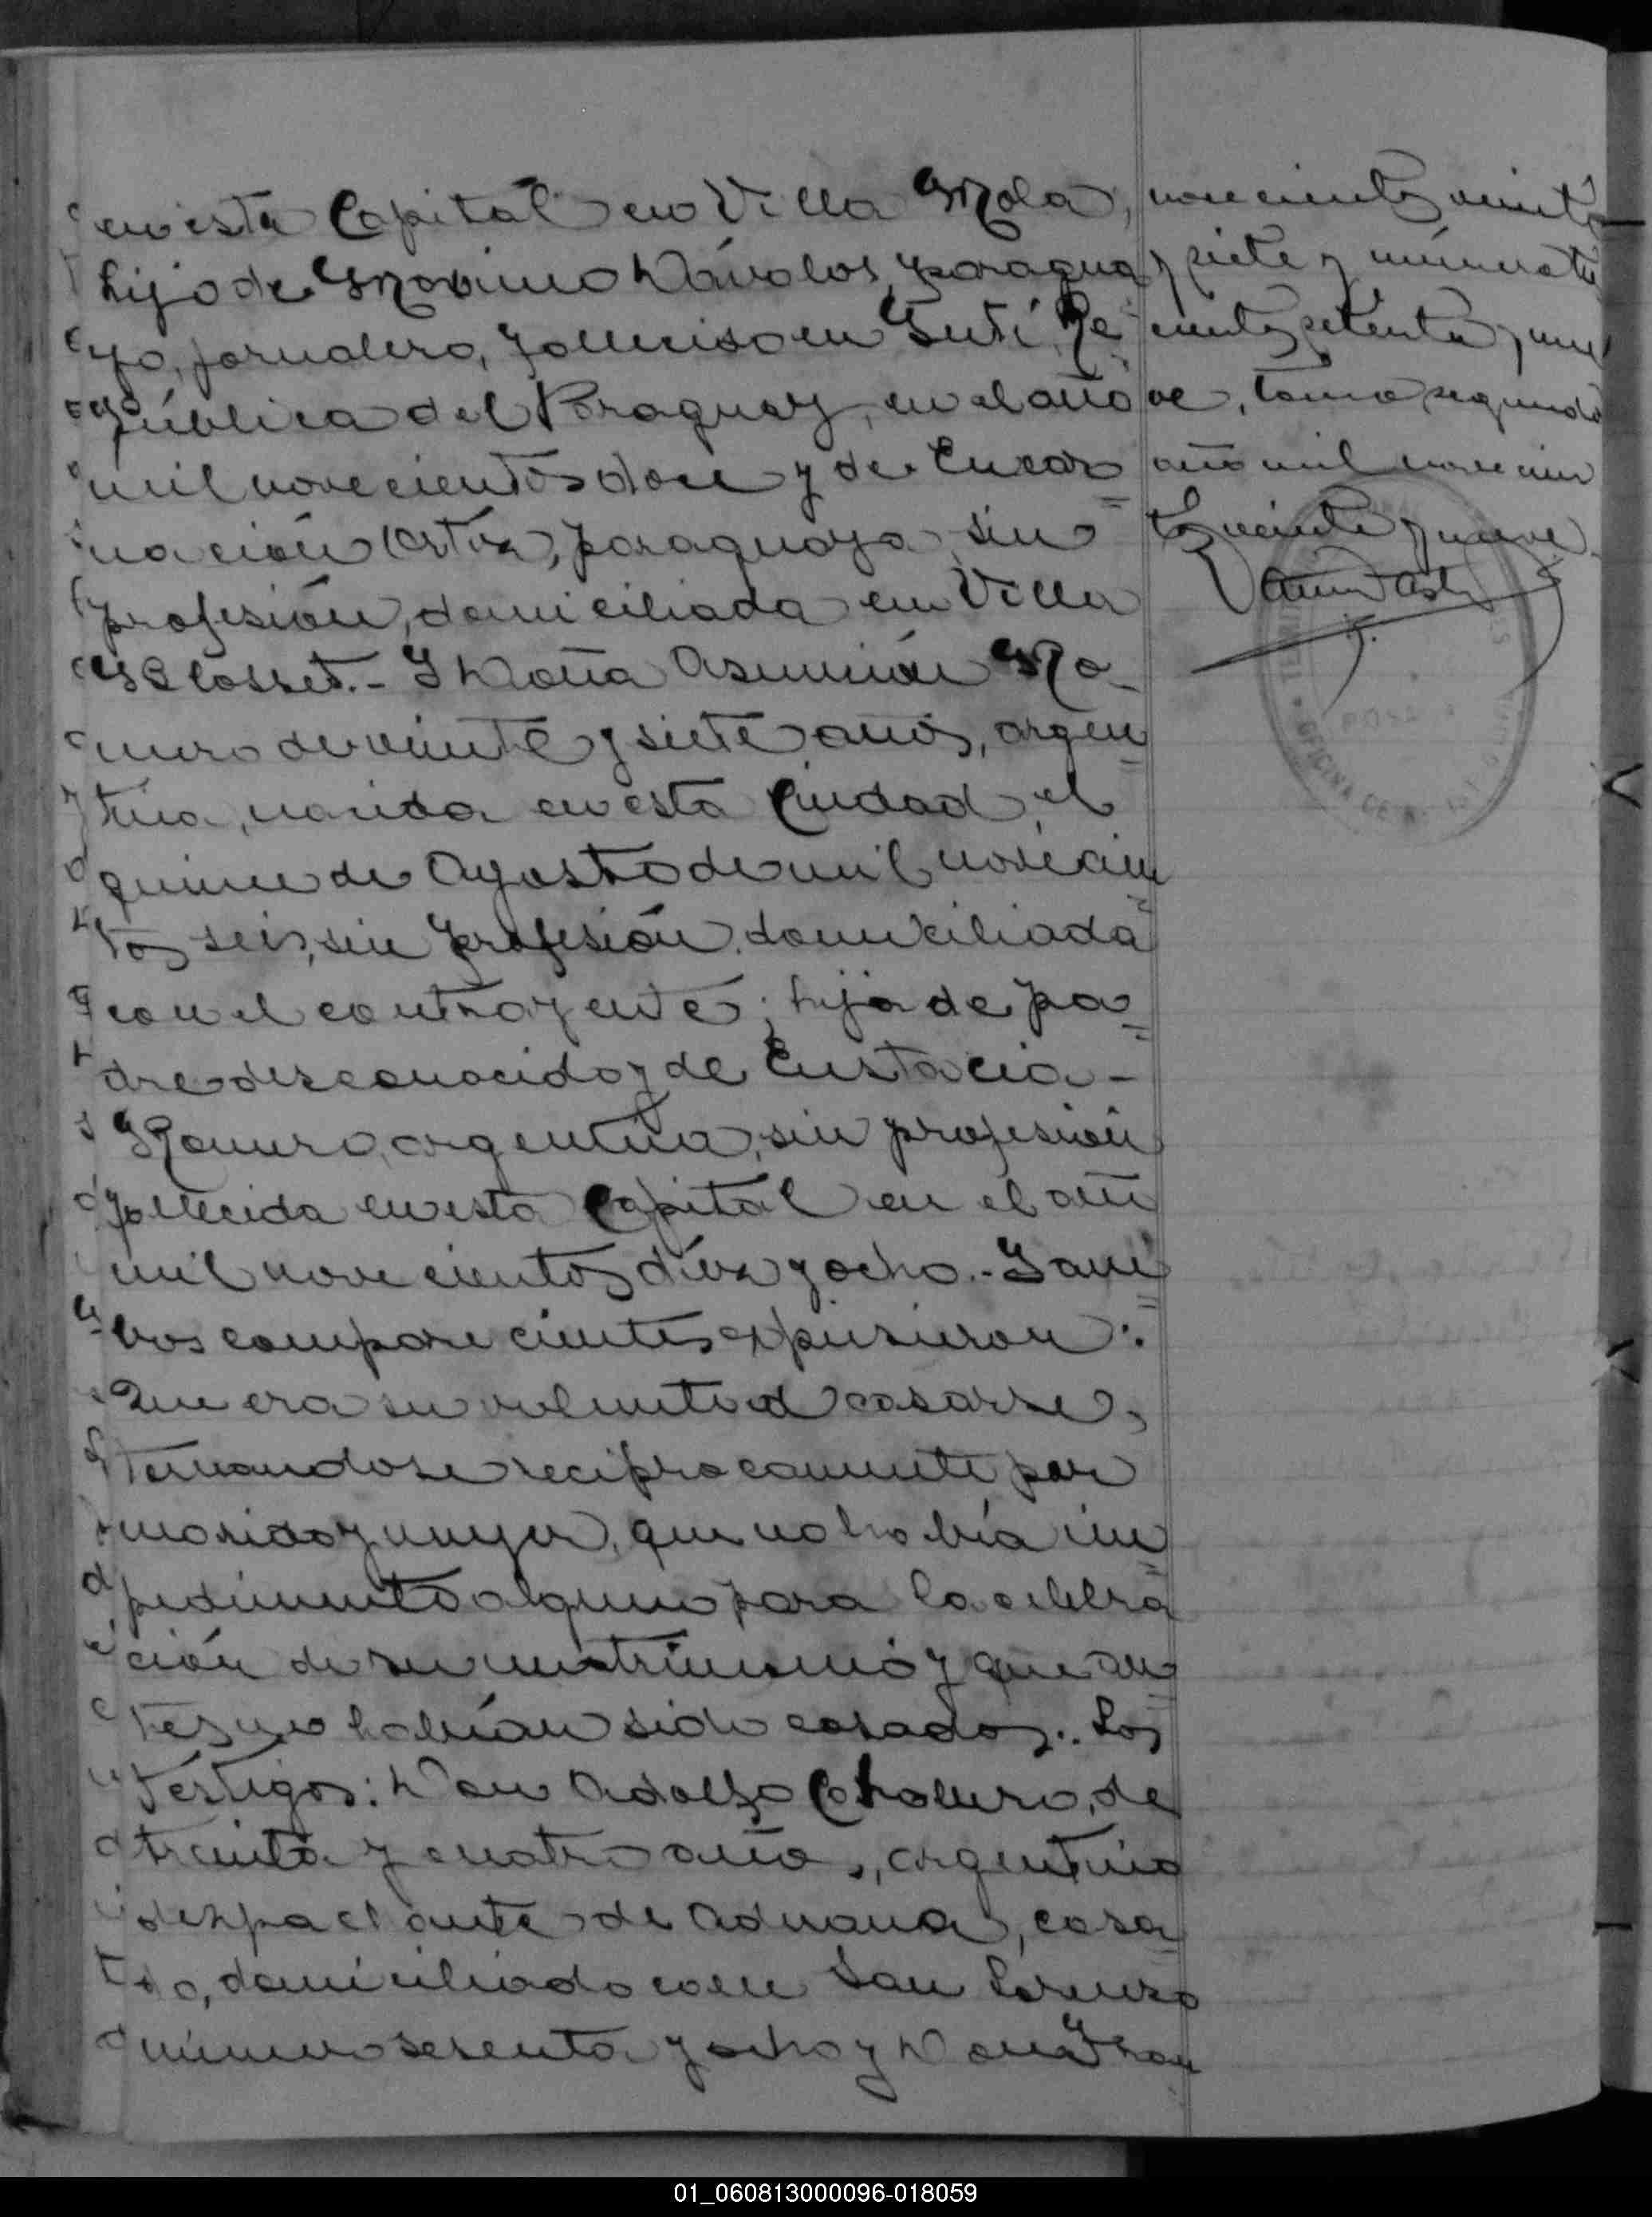 en esta Capitál en Villa Mola,
hijo de Maximo Dávalos, paragua
yo, jornalero, fallecido en Yutí Re
pública del Paraguay, en el año
mil novecientos doce y de Encar
nación Ortíz, paraguaya sin
profesión, domiciliada en Villa
Blosset.- Y Doña Asunción Ro
mero de veinte y siete años, argen
tina, nacida en esta Ciudad, el
quince de Agosto de mil novecien
tos seis, sin profesión domiciliada
con el contrayente; hija de pa
dre desconocido y de Eustacia-
Romero, argentina, sin profesión
fallecida en esta Capitál en el año
mil novecientos diez y ocho.- Y am
bos comparecientes expusieron:
Que era su voluntad casarse,
tomandose reciprocamente por
marido y mujer, que no había im
pedimento alguno para la celebra
ción de su matrimonio y que an
tes no habían sido casados.. Los
testigos: Don Adolfo de
treinta y cuatro años, argentino
despachante de Aduana, casa
do, domiciliado calle San Lorenzo
número sesenta y ocho y Don
novecientos veinte
y siete y número tres
cientos setenta y nue
ve, tomo segundo
año mil novecien
tos veinte y nueve.
OFICINA DE